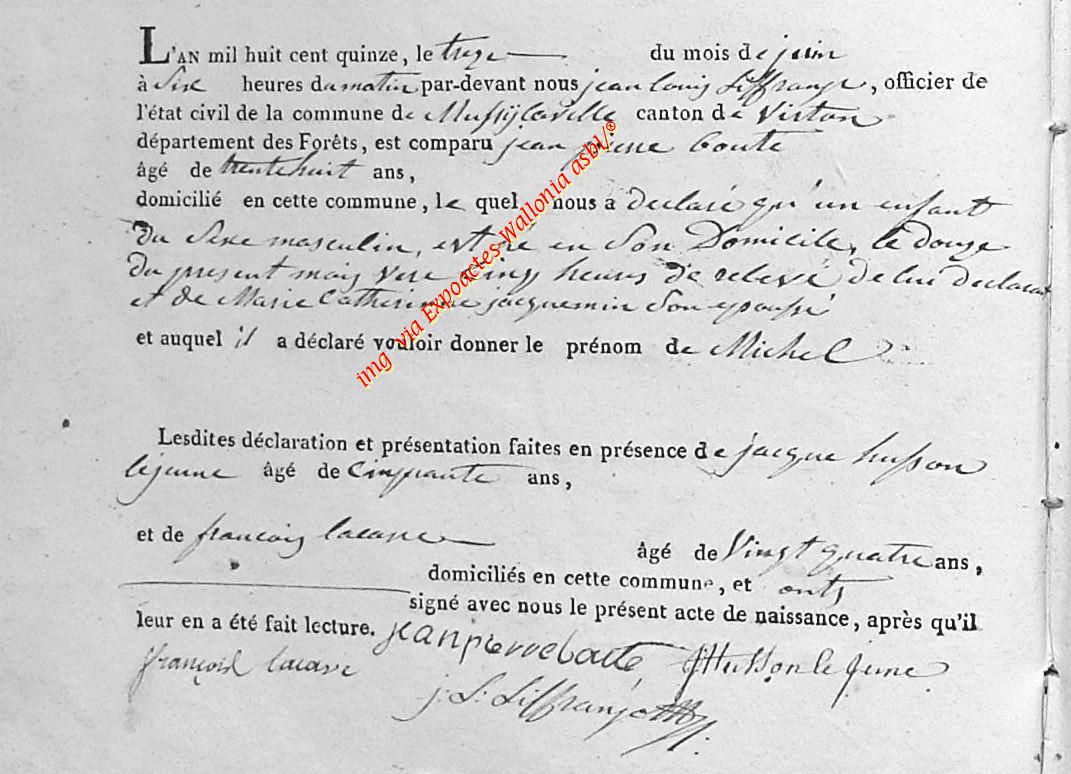 L'AN mil huit cent quinze, le treze du mois de juin
à Six heures du matin par-devant nous jean louis Siffranje, officier de
l'état civil de la commune de Mussylaville canton de Virton
département des Forêts, est comparu jean pierre boute
âgé de trente huit ans,
domicilié en cette commune, le quel nous a declaré qu'un enfant
du Sexe masculin, est né en Son Domicile, le douze
du present mois vere Cinq heures de relevé de lui declarant
et de Marie Catherinne jacquemin Son epousse
et auquel il a déclaré vouloir donner le prénom de Michel
Lesdites déclaration et présentation faites en présence de jacque husson
lejeune âgé de Cinquante ans,
et de francois lacave âgé de Vingt quatre ans,
domiciliés en cette commune, et onts
signé avec nous le présent acte de naissance, après qu'il
leur en a été fait lecture. jean pierre boute, JHusson le jeune
françois lacave
j. L. Siffranje
img via Expoactes-Wallonia asbl/®